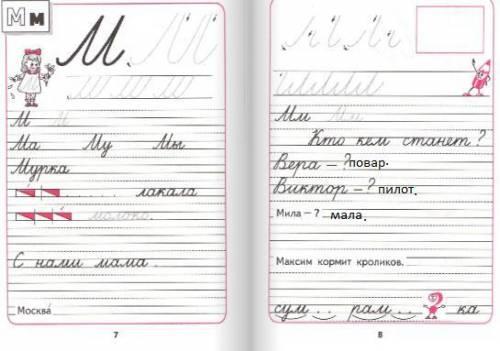 Мм
М М М
М М М
М М
Ма Му Мы
Мурка
лакала
молоко.
С нами мама.
Москва
7
Мм Мм
Кто кем станет?
Вера – ? повар.
Виктор – ? пилот.
Мила – ? мала.
Максим кормит кроликов.
сум рам ? ка
8